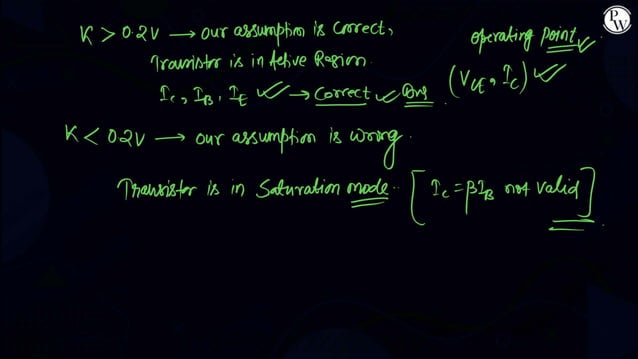 K > 0.2V → our assumption is correct,
Transistor is in Active Region.
operating point ✓
I_C, I_B, I_E ✓ → Correct ✓ Ans
(V_CE, I_C) ✓
K < 0.2V → our assumption is wrong.
Transistor is in Saturation mode. [I_C = βI_B not valid]
PW